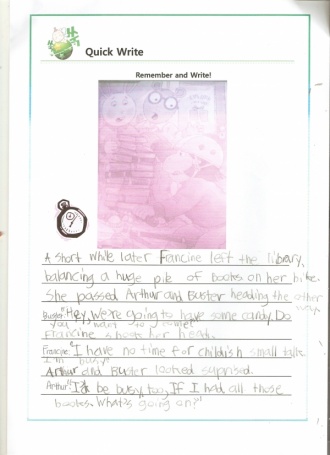 Quick Write
Remember and Write!
A short while later Francine left the library,
balancing a huge pile of books on her bike.
She passed Arthur and Buster heading the other
way.
Buster: "Hey, We're going to have some candy. Do
you want to come?"
Francine shook her head.
Francine: "I have no time for childish small talk.
I'm busy."
Arthur and Buster looked suprised.
Arthur: "I'd be busy, too, If I had all those
books. What's going on?"